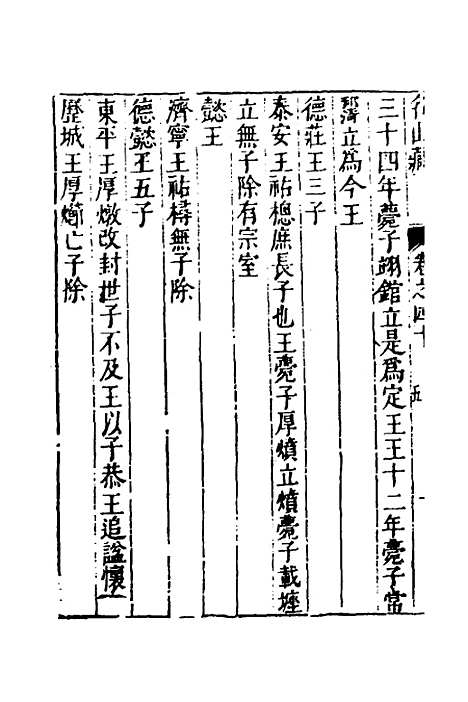 名山藏 卷之四十 五
三十四年薨子翊錧立是爲定王王十二年薨子常
立爲今王
德莊王三子
泰安王祐樬庶長子也王薨子厚立薨子載
立無子除有宗室
懿王
濟寧王祐檮無子除
德懿王五子
東平王厚燉改封世子不及王以子恭王追諡懷
歷城王厚亡子除